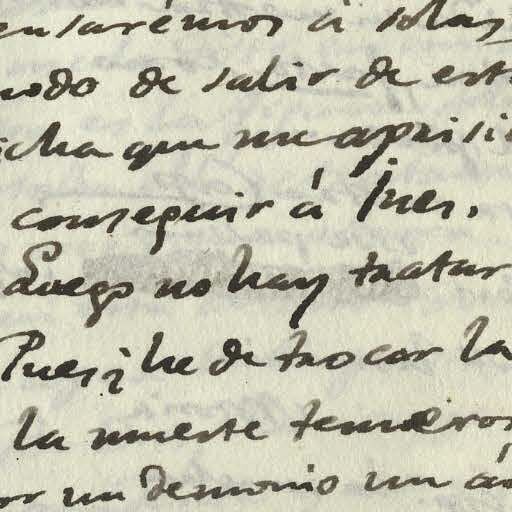 ensarémos á solas
modo de salir de est
icha que me aprisi
conseguir á Ines.
Luego no hay tratar
Pues ¿he de trocar la
la muerte temeros
or un demonio un á